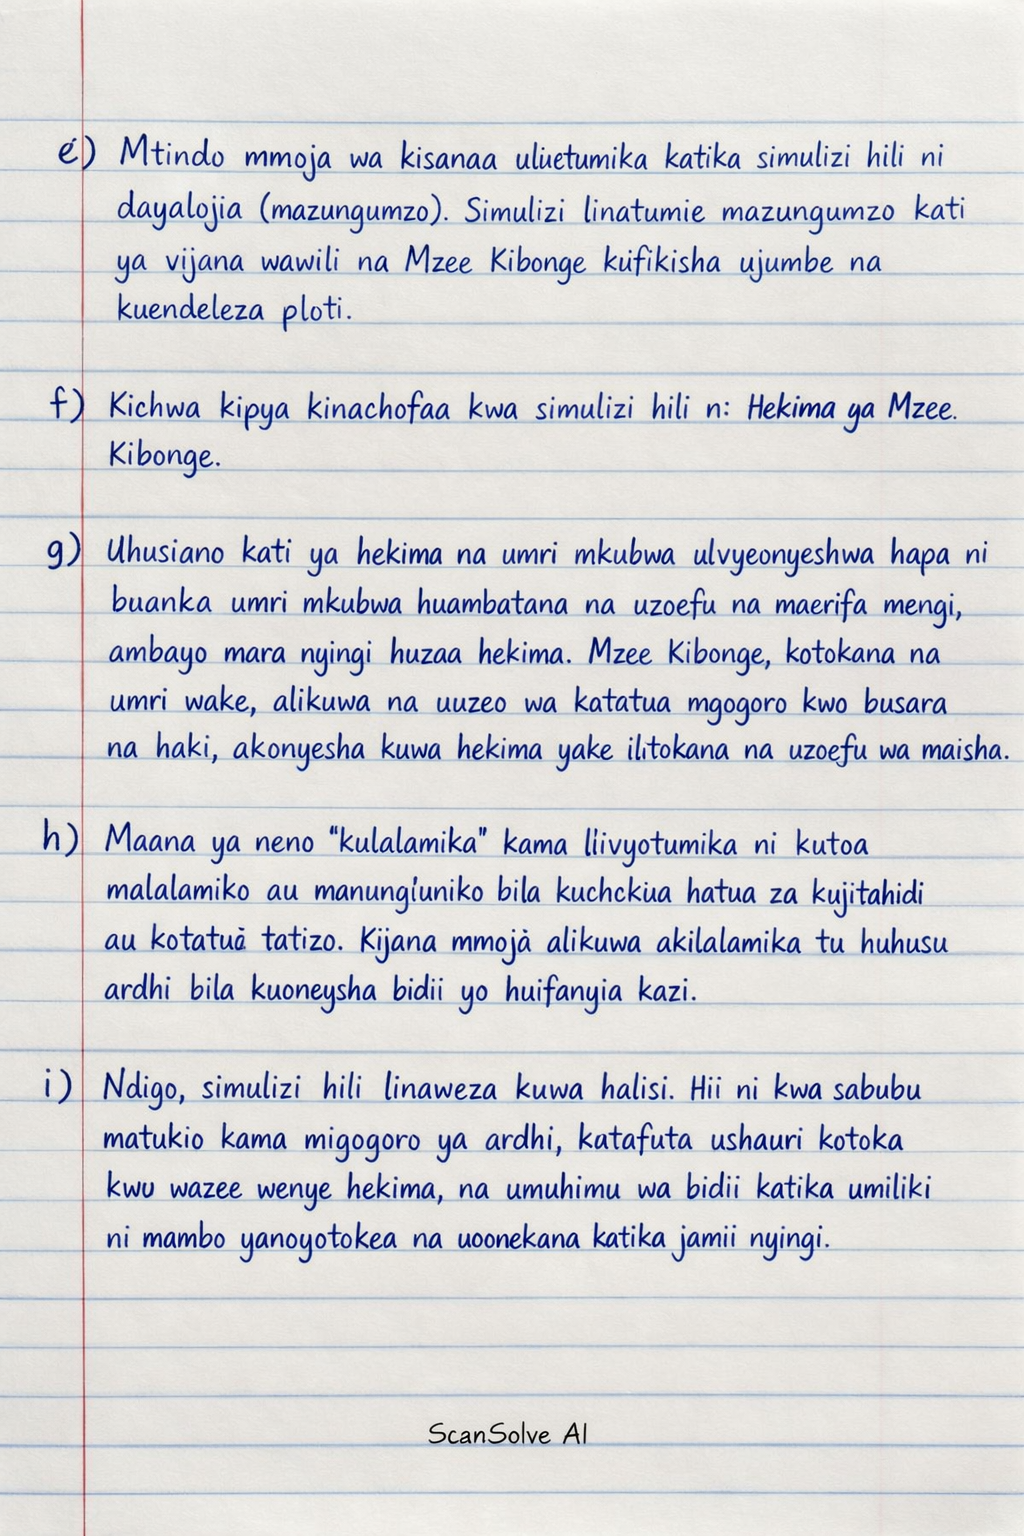 e) Mtindo mmoja wa kisanaa uliuetumika katika simulizi hili ni
dayalojia (mazungumzo). Simulizi linatumie mazungumzo kati
ya vijana wawili na Mzee Kibonge kufikisha ujumbe na
kuendeleza ploti.
f) Kichwa kipya kinachofaa kwa simulizi hili n: Hekima ya Mzee.
Kibonge.
g) Uhusiano kati ya hekima na umri mkubwa ulvyeonyeshwa hapa ni
buanka umri mkubwa huambatana na uzoefu na maerifa mengi,
ambayo mara nyingi huzaa hekima. Mzee Kibonge, kotokana na
umri wake, alikuwa na uuzeo wa katatua mgogoro kwo busara
na haki, akonyesha kuwa hekima yake ilitokana na uzoefu wa maisha.
h) Maana ya neno "kulalamika" kama liivyotumika ni kutoa
malalamiko au manung'uniko bila kuchckua hatua za kujitahidi
au kotatua tatizo. Kijana mmoja alikuwa akilalamika tu huhusu
ardhi bila kuoneysha bidii yo huifanyia kazi.
i) Ndigo, simulizi hili linaweza kuwa halisi. Hii ni kwa sabubu
matukio kama migogoro ya ardhi, katafuta ushauri kotoka
kwu wazee wenye hekima, na umuhimu wa bidii katika umiliki
ni mambo yanoyotokea na uoonekana katika jamii nyingi.
ScanSolve AI